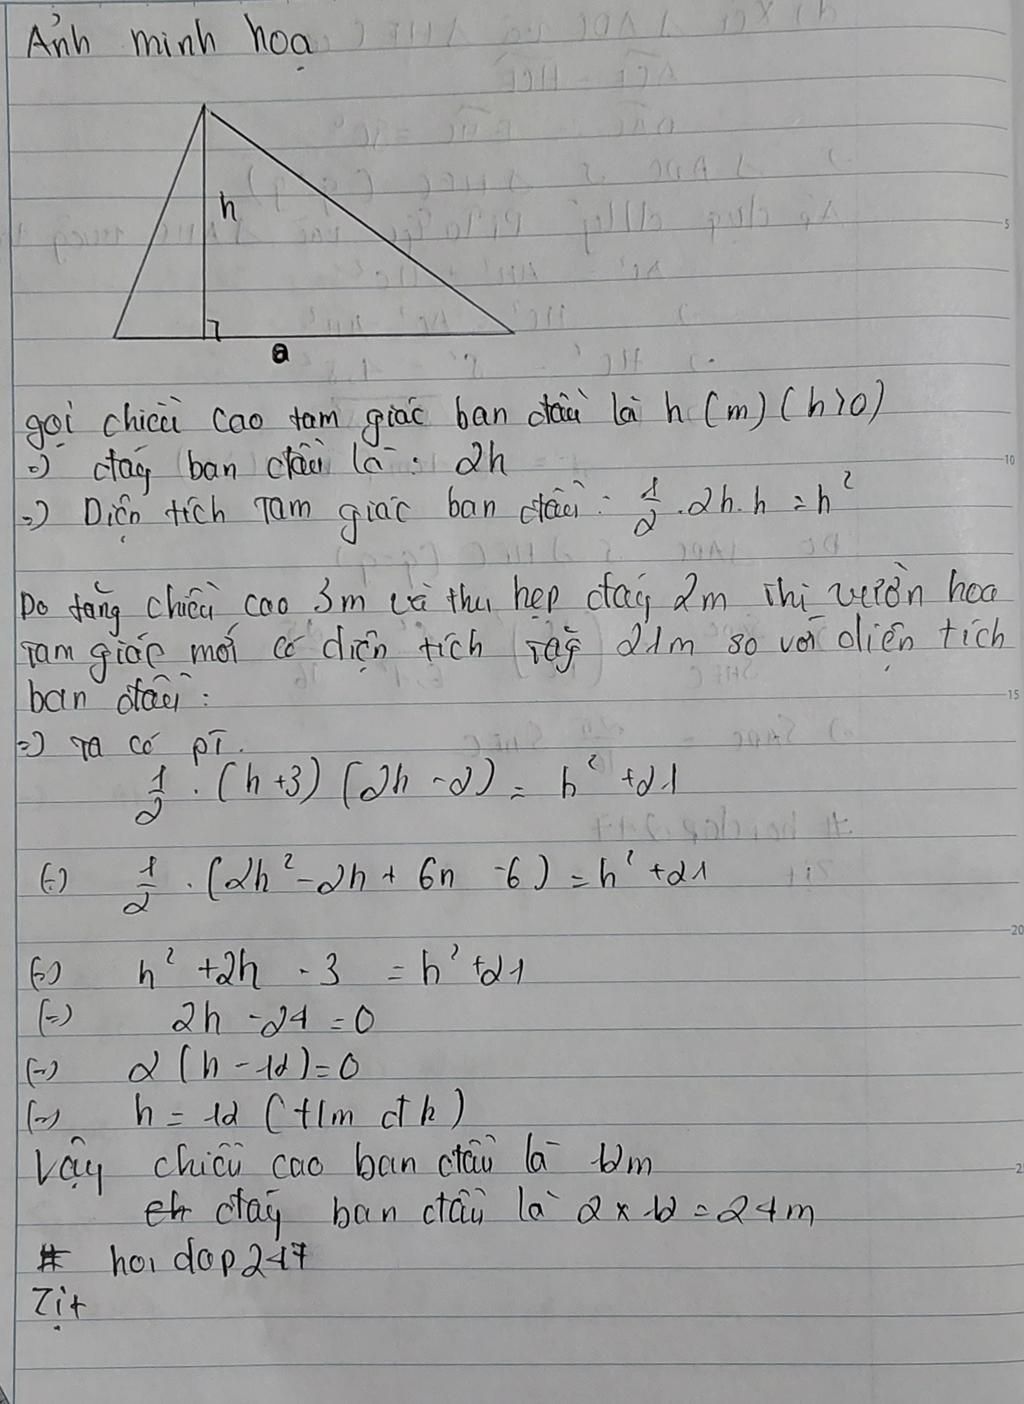 Ảnh minh hoạ
h
a
gọi chiều cao tam giác ban đầu là h (m) (h>0)
=> đáy ban đầu là : 2h
=> Diện tích Tam giác ban đầu : 1/2 . 2h . h = h²
Do tăng chiều cao 3m và thu hẹp đáy 2m thì vườn hoa
Tam giác mới có diện tích tăg 21m so với diện tích
ban đầu :
=> Ta có PT.
1/2 . (h+3) (2h - 2) = h² + 21
(=) 1/2 . (2h² - 2h + 6h - 6) = h² + 21
(=) h² + 2h - 3 = h² + 21
(=) 2h - 24 = 0
(=) 2 (h - 12) = 0
(=) h = 12 (t/m đk)
Vậy chiều cao ban đầu là 12m
đáy ban đầu là 2 x 12 = 24m
# hoidap247
Zịt
5
10
15
20
2